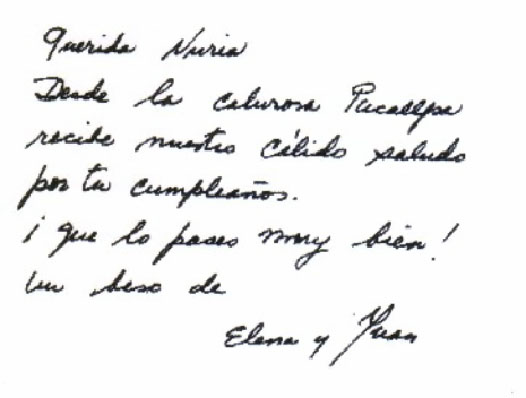 Querida Nuria
Desde la calurosa Pucallpa
recibe nuestro cálido saludo
por tu cumpleaños.
¡ que lo pases muy bien!
Un beso de
Elena y Juan